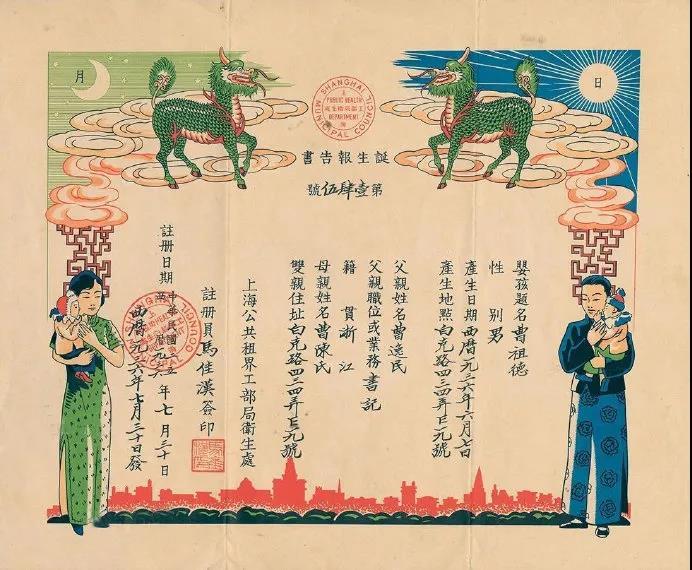 月
日
SHANGHAI MUNICIPAL COUNCIL
PUBLIC HEALTH
DEPARTMENT
誕生報告書
第壹肆伍號
嬰孩題名曹祖德
性別男
產生日期西曆一九三六年六月七日
產生地點白克路四三四弄九號
父親姓名曹逸民
父親職位或業務書記
籍貫浙江
母親姓名曹陳氏
雙親住址白克路四三四弄九號
上海公共租界工部局衛生處
註册員馬佳漢簽印
註册日期中華民國二五年七月三十日
西曆一九三六年七月三十日發